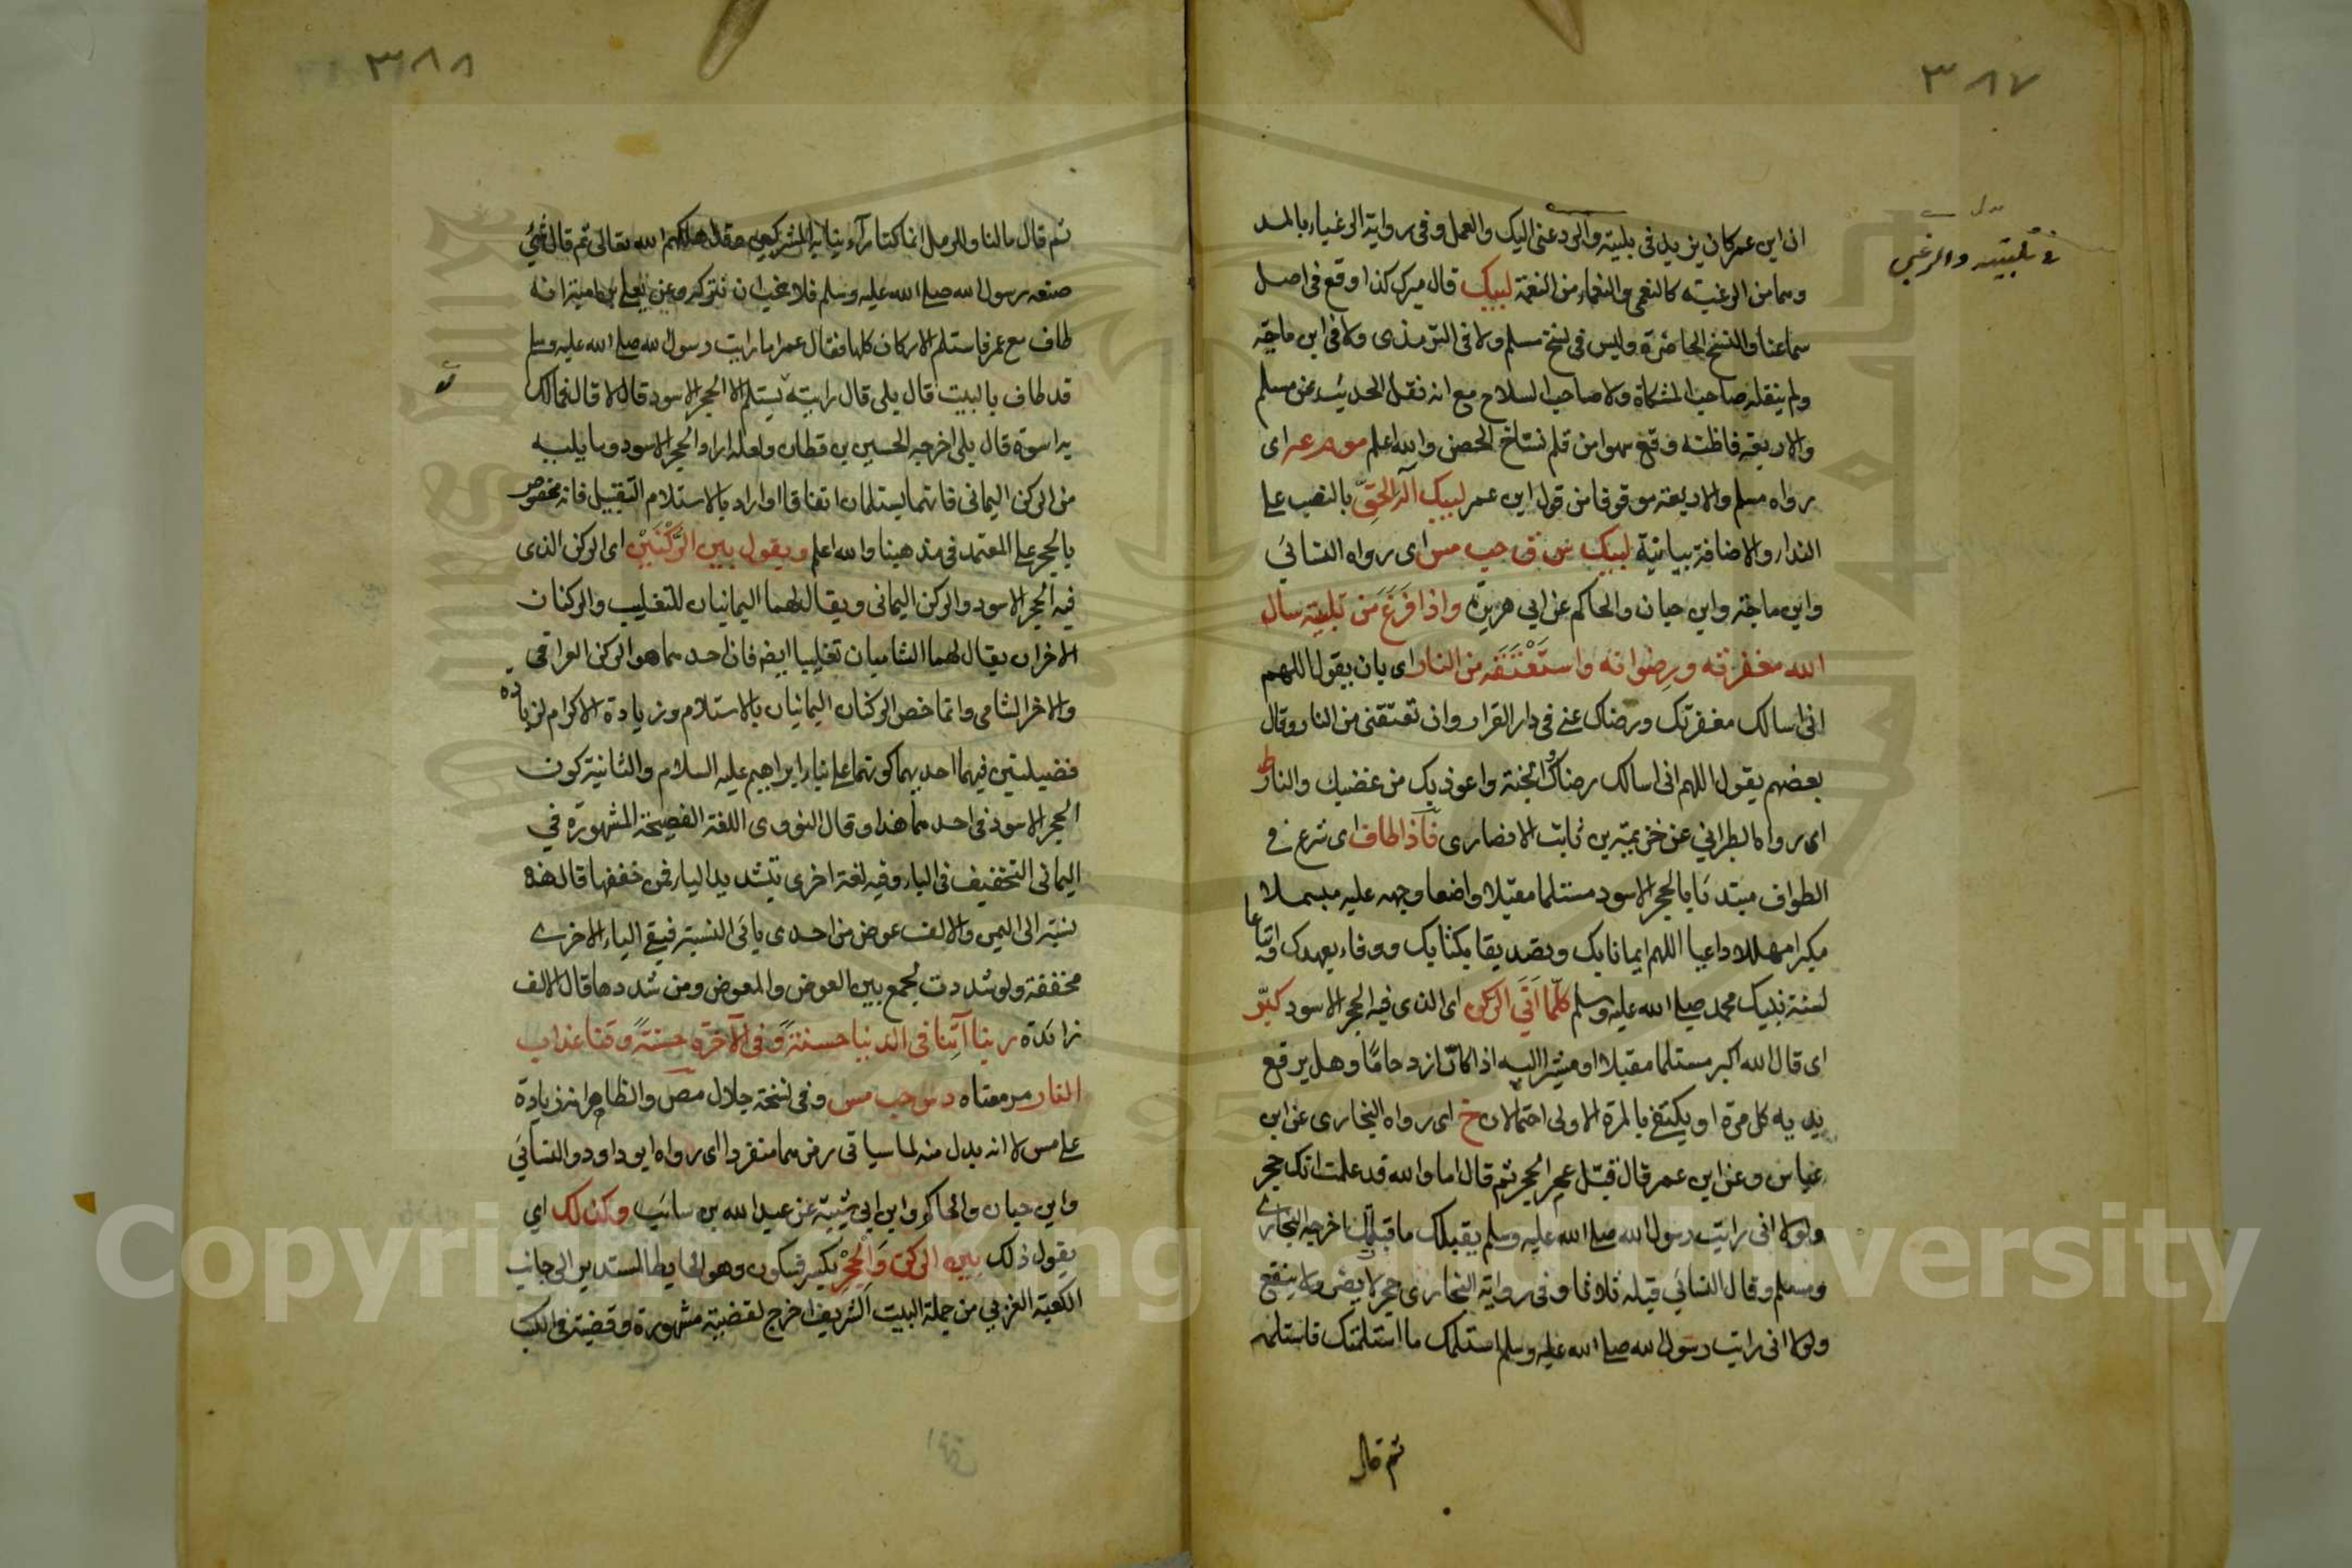 ٣٨٧
في تلبيته والرغبى
ان ابن عمر كان يزيد في تلبيته والرغبى اليك والعمل وفي رواية الرغباء بالمد
وهما من الرغبته كالنعمى والنعماء من النعمة لبيك قال ميرك كذا وقع في اصل
سماعنا والنسخ الحاضرة وليس في نسخ مسلم ولا في الترمذى ولا في ابن ماجه
ولم ينقله صاحب المشكاة ولا صاحب السلاح مع انه نقل الحديث عن مسلم
والاربعة فاظنه وقع سهوا من قلم نساخ الحصن والله اعلم مو م عه اى
رواه مسلم والاربعة موقوفا من قول ابن عمر لبيك اله الحق بالنصب على
النداء والاضافة بيانية لبيك س ق حب مس اى رواه النسائي
وابن ماجة وابن حبان والحاكم عن ابي هريرة واذا فرغ من تلبيته سأل
الله مغفرته ورضوانه واستعتقه من النار اى بان يقول اللهم
انى اسالك مغفرتك ورضاك عني في دار القرار وان تعتقنى من النار وقال
بعضهم يقول اللهم انى اسالك رضاك والجنة واعوذ بك من غضبك والنار ط
اى رواه الطبراني عن خزيمة بن ثابت الانصارى فاذا طاف اى شرع في
الطواف مبتدئا بالحجر الاسود مستلما مقبلا واضعا وجهه عليه مبسملا
مكبرا مهللا داعيا اللهم ايمانا بك وتصديقا بكتابك ووفاء بعهدك واتباعا
لسنة نبيك محمد صلى الله عليه وسلم كلما اتى الركن اى الذى فيه الحجر الاسود كبر
اى قال الله اكبر مستلما مقبلا او مشيرا اليه اذا كان ازدحاما وهل يرفع
يديه كل مرة او يكتفى بالمرة الاولى احتمالان خ اى رواه البخارى عن ابن
عباس وعن ابن عمر قال قبل عمر الحجر ثم قال اما والله قد علمت انك حجر
ولولا انى رايت رسول الله صلى الله عليه وسلم يقبلك ما قبلتك اخرجه البخارى
ومسلم وقال النسائي قبله ثلاثا وفي رواية البخارى حجر لا يضر ولا ينفع
ولولا انى رايت رسول الله صلى الله عليه وسلم استلمك ما استلمتك فاستلمه
ثم قال
٣٨٨
ثم قال مالنا وللرمل انما كنا رآءينا به المشركين وقد اهلكهم الله تعالى ثم قال شئ
صنعه رسول الله صلى الله عليه وسلم فلا نحب ان نتركه وعن يعلى بن امية انه
طاف مع عمر فاستلم الاركان كلها فقال عمر اما رايت رسول الله صلى الله عليه وسلم
قد طاف بالبيت قال بلى قال رايته يستلم الا الحجر الاسود قال لا قال فمالك
به اسوة قال بلى اخرجه الحسين بن قطان ولعله اراد الحجر الاسود وما يليه
من الركن اليمانى فانهما يستلمان اتفاقا او اراد بالاستلام التقبيل فانه مخصوص
بالحجر على المعتمد في مذهبنا والله اعلم ويقول بين الركنين اى الركن الذى
فيه الحجر الاسود والركن اليمانى ويقال لهما اليمانيان للتغليب والركنان
الاخران يقال لهما الشاميان تغليبا ايضا فان احدهما هو الركن العراقي
والاخر الشامى وانما خص الركنان اليمانيان بالاستلام وزيادة الاكرام لزيادة
فضيلتين فيهما احديهما كونهما على بناء ابراهيم عليه السلام والثانية كون
الحجر الاسود في احدهما هذا وقال النووى اللغة الفصيحة المشهورة في
اليمانى التخفيف في الياء وفيه لغة اخرى بتشديد الياء فمن خففها قال هذه
نسبة الى اليمن والالف عوض من احدى يائى النسبة فبقى الياء الاخرى
مخففة ولو شددت لجمع بين العوض والمعوض ومن شددها قال الالف
زائدة ربنا آتنا في الدنيا حسنة وفي الآخرة حسنة وقنا عذاب
النار مر معناه د س حب مس وفى نسخة جلال مص والظاهر انه زيادة
على مس لا انه بدل منه لما سياتى رمزهما منفردا اى رواه ابو داود والنسائي
وابن حبان والحاكم وابن ابي شيبة عن عبد الله بن سائب وكذلك اي
يقول ذلك بين الركن والحجر بكسر فسكون وهو الحايط المستدير الى جانب
الكعبة الغربي من جملة البيت الشريف اخرج لقضية مشهورة وقضية في الكتب
Copyright © King Saud University